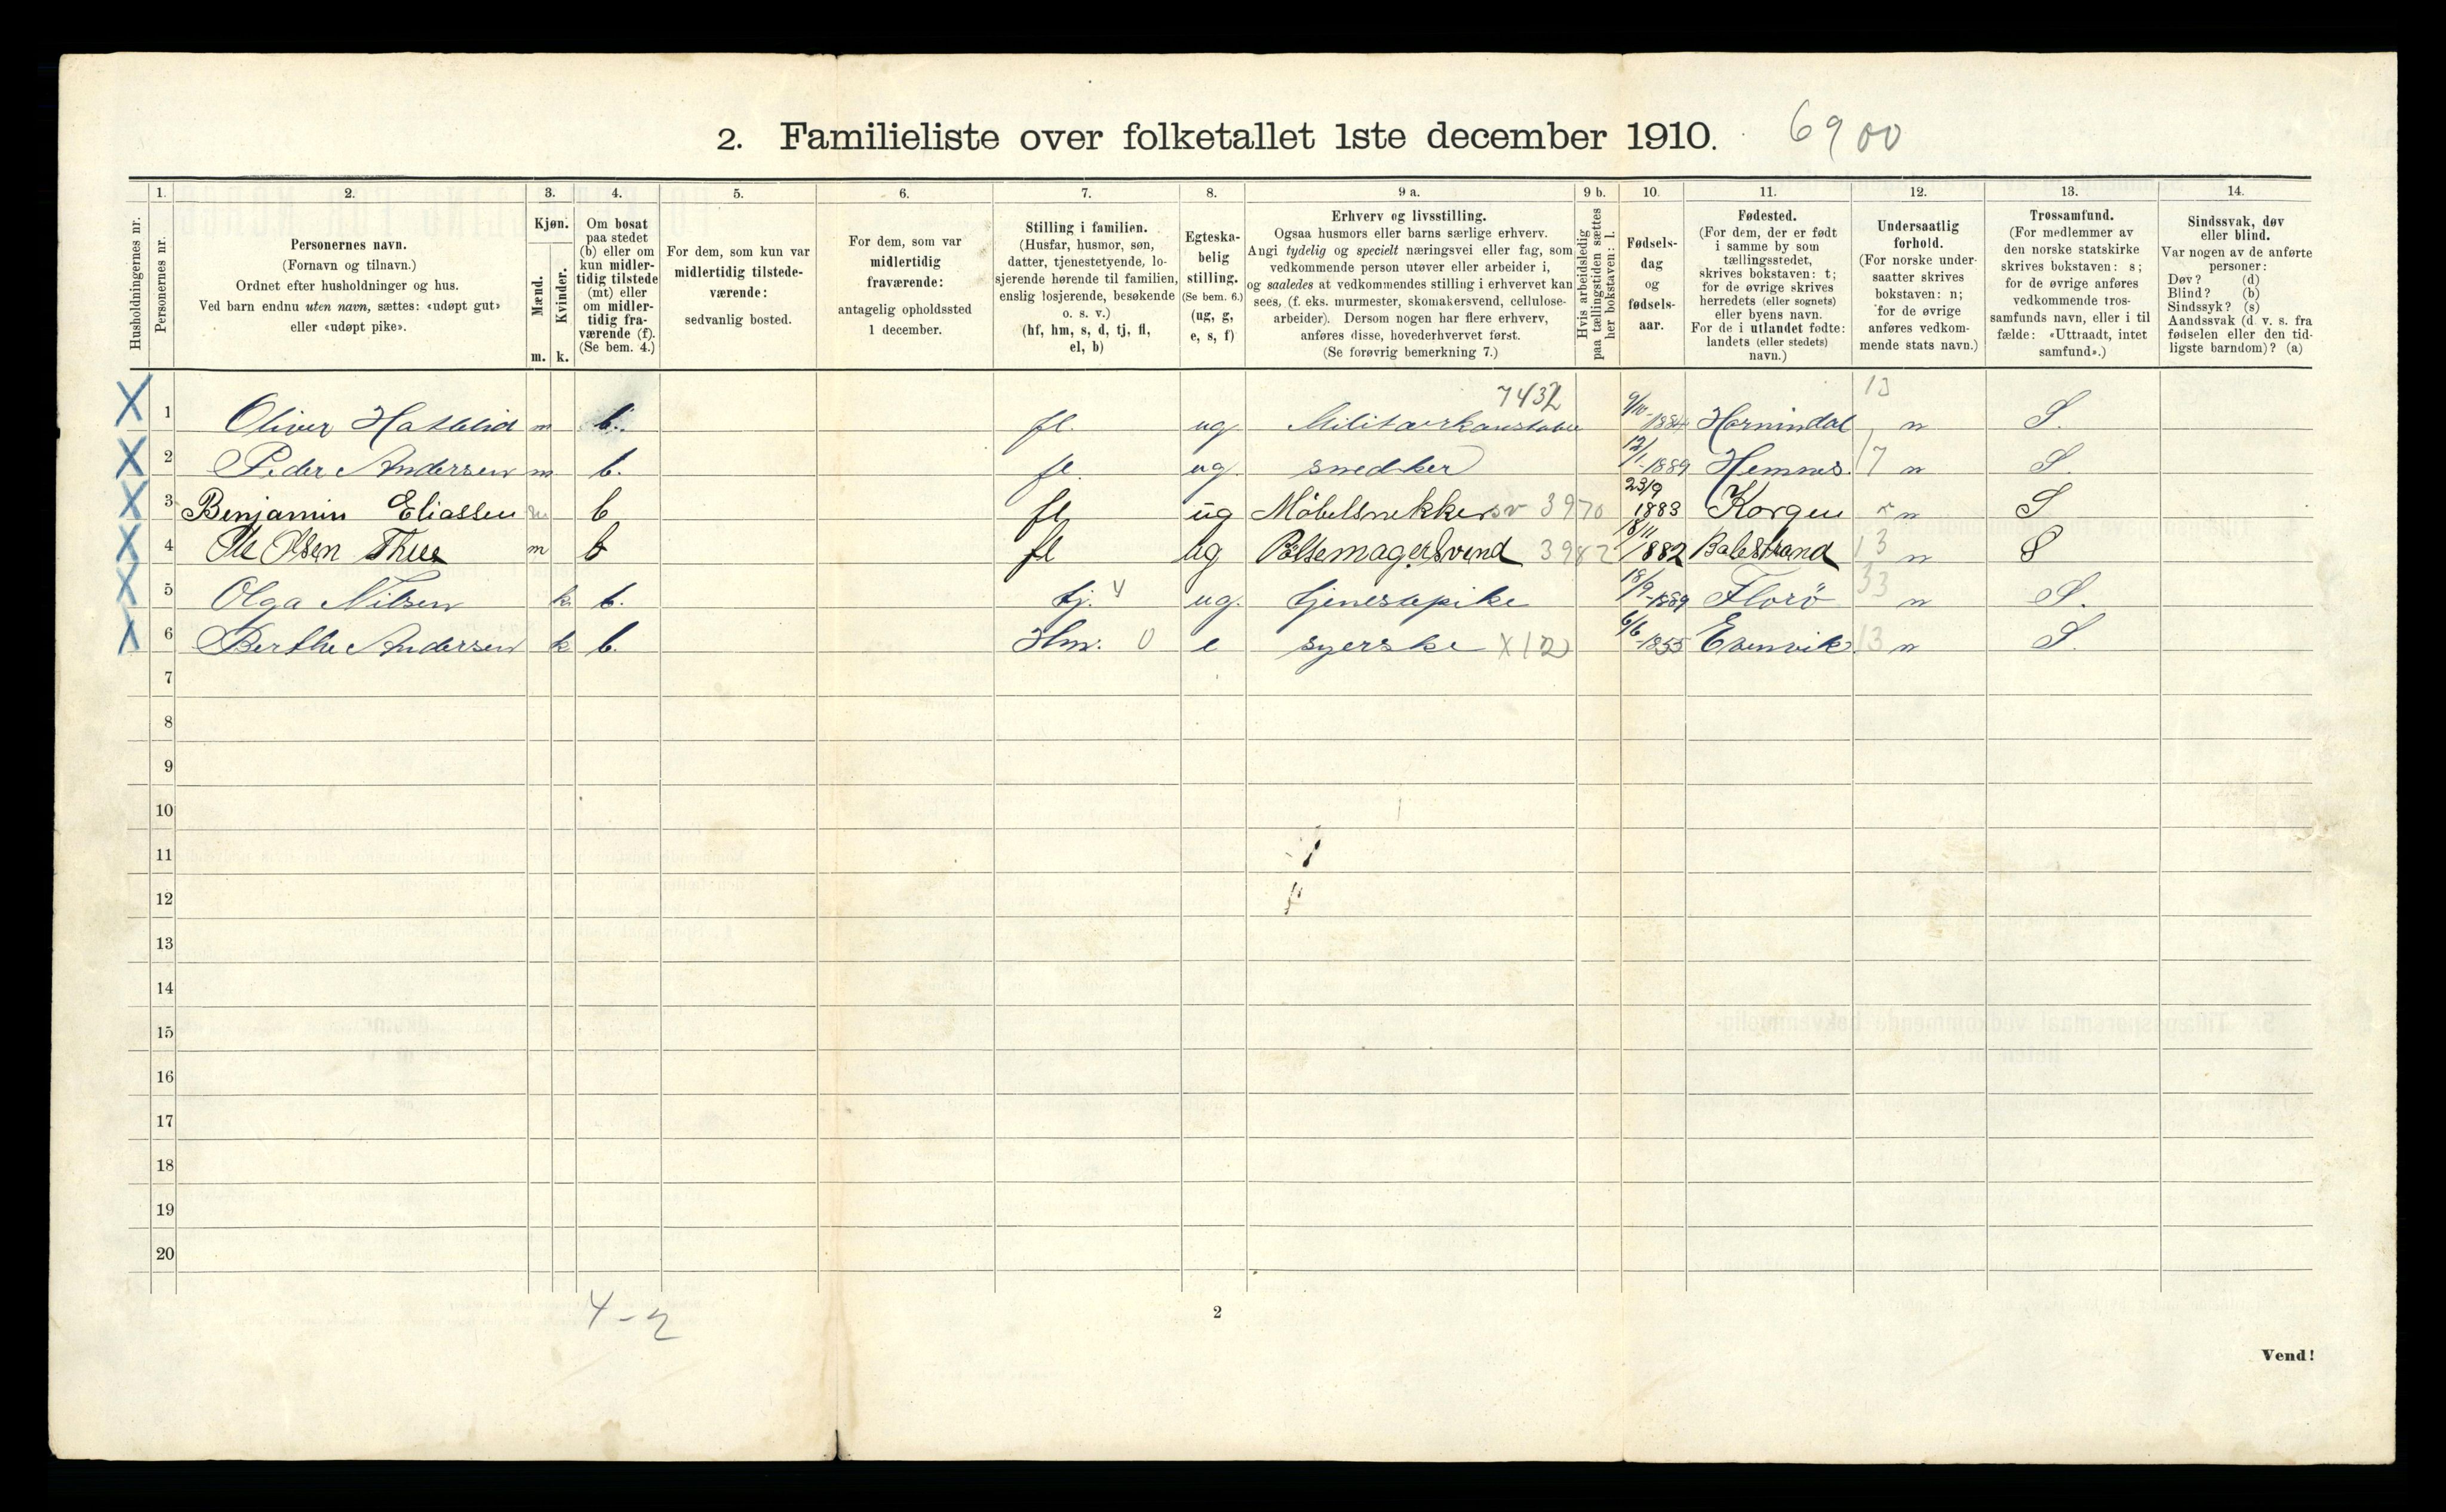 2. Familieliste over folketallet 1ste december 1910. 6900
1. 2. 3. 4. 5. 6. 7. 8. 9 a. 9 b. 10. 11. 12. 13. 14.
Husholdningernes nr.
Personernes nr.
Personernes navn.
(Fornavn og tilnavn.)
Ordnet efter husholdninger og hus.
Ved barn endnu uten navn, sættes: «udøpt gut»
eller «udøpt pike».
Kjøn.
Mænd.
Kvinder.
m. k.
Om bosat
paa stedet
(b) eller om
kun midler-
tidig tilstede
(mt) eller
om midler-
tidig fra-
værende (f).
(Se bem. 4.)
For dem, som kun var
midlertidig tilstede-
værende:
sedvanlig bosted.
For dem, som var
midlertidig
fraværende:
antagelig opholdssted
1 december.
Stilling i familien.
(Husfar, husmor, søn,
datter, tjenestetyende, lo-
sjerende hørende til familien,
enslig losjerende, besøkende
o. s. v.)
(hf, hm, s, d, tj, fl,
el, b)
Egteska-
belig
stilling.
(Se bem. 6.)
(ug, g,
e, s, f)
Erhverv og livsstilling.
Ogsaa husmors eller barns særlige erhverv.
Angi tydelig og specielt næringsvei eller fag, som
vedkommende person utøver eller arbeider i,
og saaledes at vedkommendes stilling i erhvervet kan
sees, (f. eks. murmester, skomakersvend, cellulose-
arbeider). Dersom nogen har flere erhverv,
anføres disse, hovederhvervet først.
(Se forøvrig bemerkning 7.)
Hvis arbeidsledig
paa tællingstiden sættes
her bokstaven: l.
Fødsels-
dag
og
fødsels-
aar.
Fødested.
(For dem, der er født
i samme by som
tællingsstedet,
skrives bokstaven: t;
for de øvrige skrives
herredets (eller sognets)
eller byens navn.
For de i utlandet fødte:
landets (eller stedets)
navn.)
Undersaatlig
forhold.
(For norske under-
saatter skrives
bokstaven: n;
for de øvrige
anføres vedkom-
mende stats navn.)
Trossamfund.
(For medlemmer av
den norske statskirke
skrives bokstaven: s;
for de øvrige anføres
vedkommende tros-
samfunds navn, eller i til
fælde: «Uttraadt, intet
samfund».)
Sindssvak, døv
eller blind.
Var nogen av de anførte
personer:
Døv? (d)
Blind? (b)
Sindssyk? (s)
Aandssvak (d. v. s. fra
fødselen eller den tid-
ligste barndom)? (a)
7432 13
X 1 Oliver m b. fl. ug. Militærkonstabel 9/10-1884 Hornindal n S.
X 2 Peder Andersen m b. fl. ug. snedker 12/1-1889 Hemnes. 17 n S.
X 3 Benjamin Eliassen m b fl ug Möbelsnekkersv 3970 23/9 1883 Korgen n S
X 4 Ole Olsen Thue m b fl ug Pölsemagersvend 3982 18/11 1882 Balestrand 13 n S
X 5 Olga Nilsen k b. tj. 4 ug. tjenestepike 18/9-1889 Florö 33 n S.
X 6 Berthe Andersen k b. Hm. 0 e syerske X12 6/6-1855 Evenvik. 13 n S.
7
8
9
10
11
12
13
14
15
16
17
18
19
20
4-2
2
Vend!